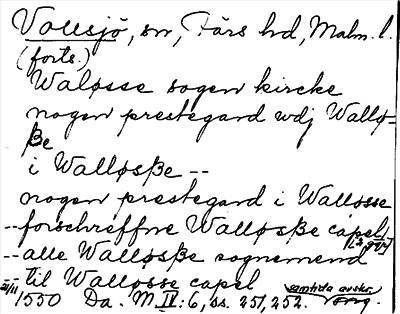 Vollsjö, sn, Färs hd, Malm. l.
(forts.)
Waløsse sogen kircke
nogen prestegard wdj Wallø-
ße
i Walløsße --
nogen prestegard i Walløsse
-- forschreffne Walløsße capel
[2 ggr]
-- alle Walløsße sognemend
-- til Walløsse capel
21/11 1550 Da. M IV: 6, ss. 251, 252.
samtida avskr.